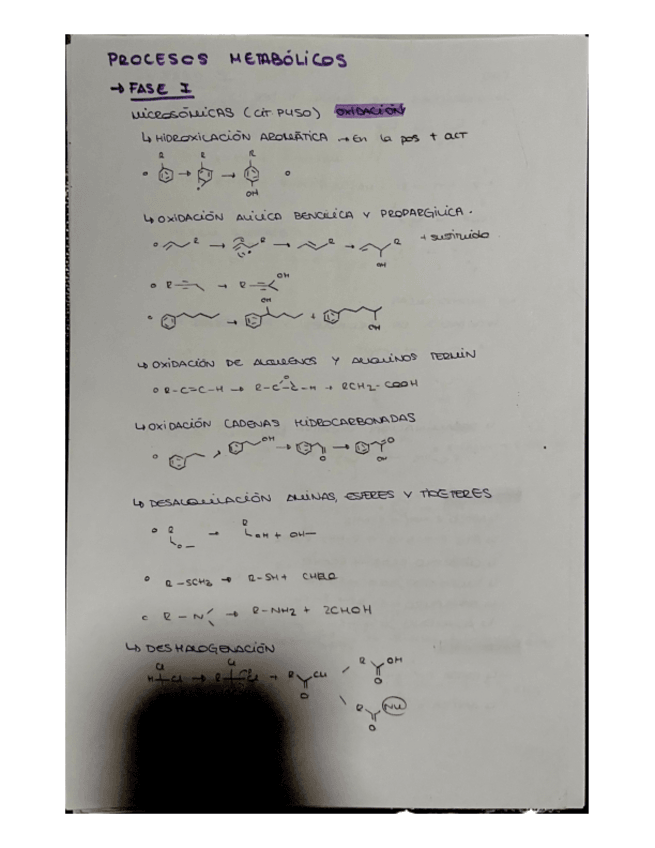 PROCESOS METABÓLICOS
→ FASE I
MICROSÓMICAS (CIT P450) OXIDACIÓN
↳ HIDROXILACIÓN AROMÁTICA → En la pos + act
R R R
OH
↳ OXIDACIÓN ALÍLICA BENCÍLICA Y PROPARGÍLICA.
R → R → R → R + sustituido
OH
R → R OH
OH
→ + OH
↳ OXIDACIÓN DE ALQUENOS Y ALQUINOS TERMIN
R-C≡C-H → R-C=C-H → RCH2-COOH
↳ OXIDACIÓN CADENAS HIDROCARBONADAS
→ OH → O → O
OH
↳ DESALQUILACIÓN AMINAS, ESTERES Y TIOETERES
R → R
O- OH + OH-
R-SCH3 → R-SH +
R-N → R-NH2 + 2CHOH
↳ DESHALOGENACIÓN
Cl Cl
H Cl → R → R Cl R OH
O O
R Nu
O